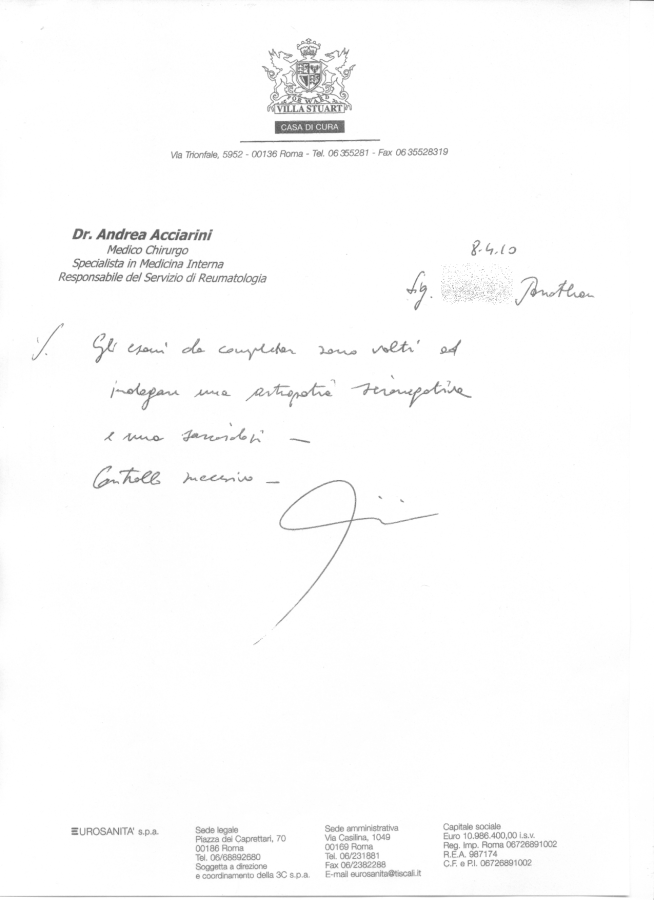 FORWARD
VILLA STUART
CASA DI CURA
Via Trionfale, 5952 - 00136 Roma - Tel. 06 355281 - Fax 06 35528319
Dr. Andrea Acciarini
Medico Chirurgo
Specialista in Medicina Interna
Responsabile del Servizio di Reumatologia
8.4.10
Sig. Jonathan
Gli esami da completar sono volti ad
indagare una artropatia sieronegativa
e una sarcoidosi —
Controllo successivo —
EUROSANITA' s.p.a.
Sede legale
Piazza dei Caprettari, 70
00186 Roma
Tel. 06/68892680
Soggetta a direzione
e coordinamento della 3C s.p.a.
Sede amministrativa
Via Casilina, 1049
00169 Roma
Tel. 06/231881
Fax 06/2382288
E-mail eurosanita@tiscali.it
Capitale sociale
Euro 10.986.400,00 i.s.v.
Reg. Imp. Roma 06726891002
R.E.A. 987174
C.F. e P.I. 06726891002